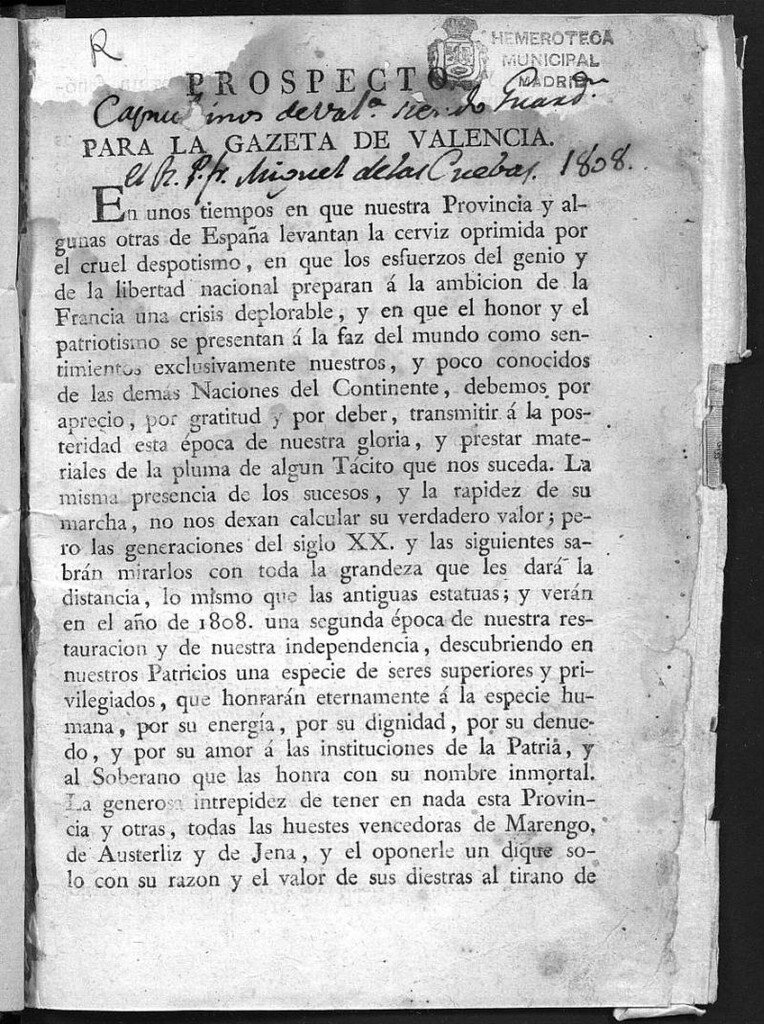 R
HEMEROTECA
MUNICIPAL
MADRID
PROSPECTO
Capuchinos de Val.ª siendo Guard.n
PARA LA GAZETA DE VALENCIA.
el R. P. fr. Miguel de las Cuebas. 1808.
En unos tiempos en que nuestra Provincia y al-
gunas otras de España levantan la cerviz oprimida por
el cruel despotismo, en que los esfuerzos del genio y
de la libertad nacional preparan á la ambicion de la
Francia una crisis deplorable, y en que el honor y el
patriotismo se presentan á la faz del mundo como sen-
timientos exclusivamente nuestros, y poco conocidos
de las demás Naciones del Continente, debemos por
aprecio, por gratitud y por deber, transmitir á la pos-
teridad esta época de nuestra gloria, y prestar mate-
riales de la pluma de algun Tácito que nos suceda. La
misma presencia de los sucesos, y la rapidez de su
marcha, no nos dexan calcular su verdadero valor; pe-
ro las generaciones del siglo XX. y las siguientes sa-
brán mirarlos con toda la grandeza que les dará la
distancia, lo mismo que las antiguas estatuas; y verán
en el año de 1808. una segunda época de nuestra res-
tauracion y de nuestra independencia, descubriendo en
nuestros Patricios una especie de seres superiores y pri-
vilegiados, que honrarán eternamente á la especie hu-
mana, por su energía, por su dignidad, por su denue-
do, y por su amor á las instituciones de la Patria, y
al Soberano que las honra con su nombre inmortal.
La generosa intrepidez de tener en nada esta Provin-
cia y otras, todas las huestes vencedoras de Marengo,
de Austerliz y de Jena, y el oponerle un dique so-
lo con su razon y el valor de sus diestras al tirano de